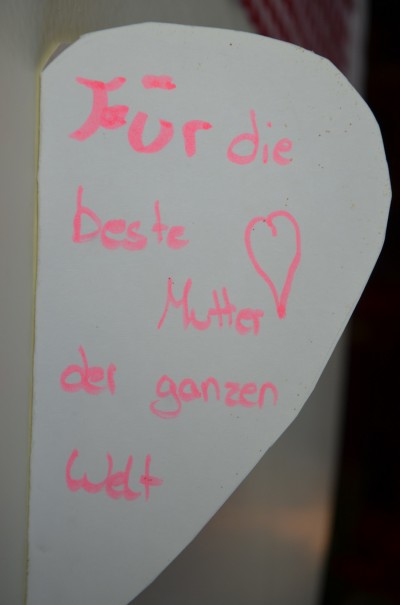 Für die
beste
Mutter
der ganzen
Welt